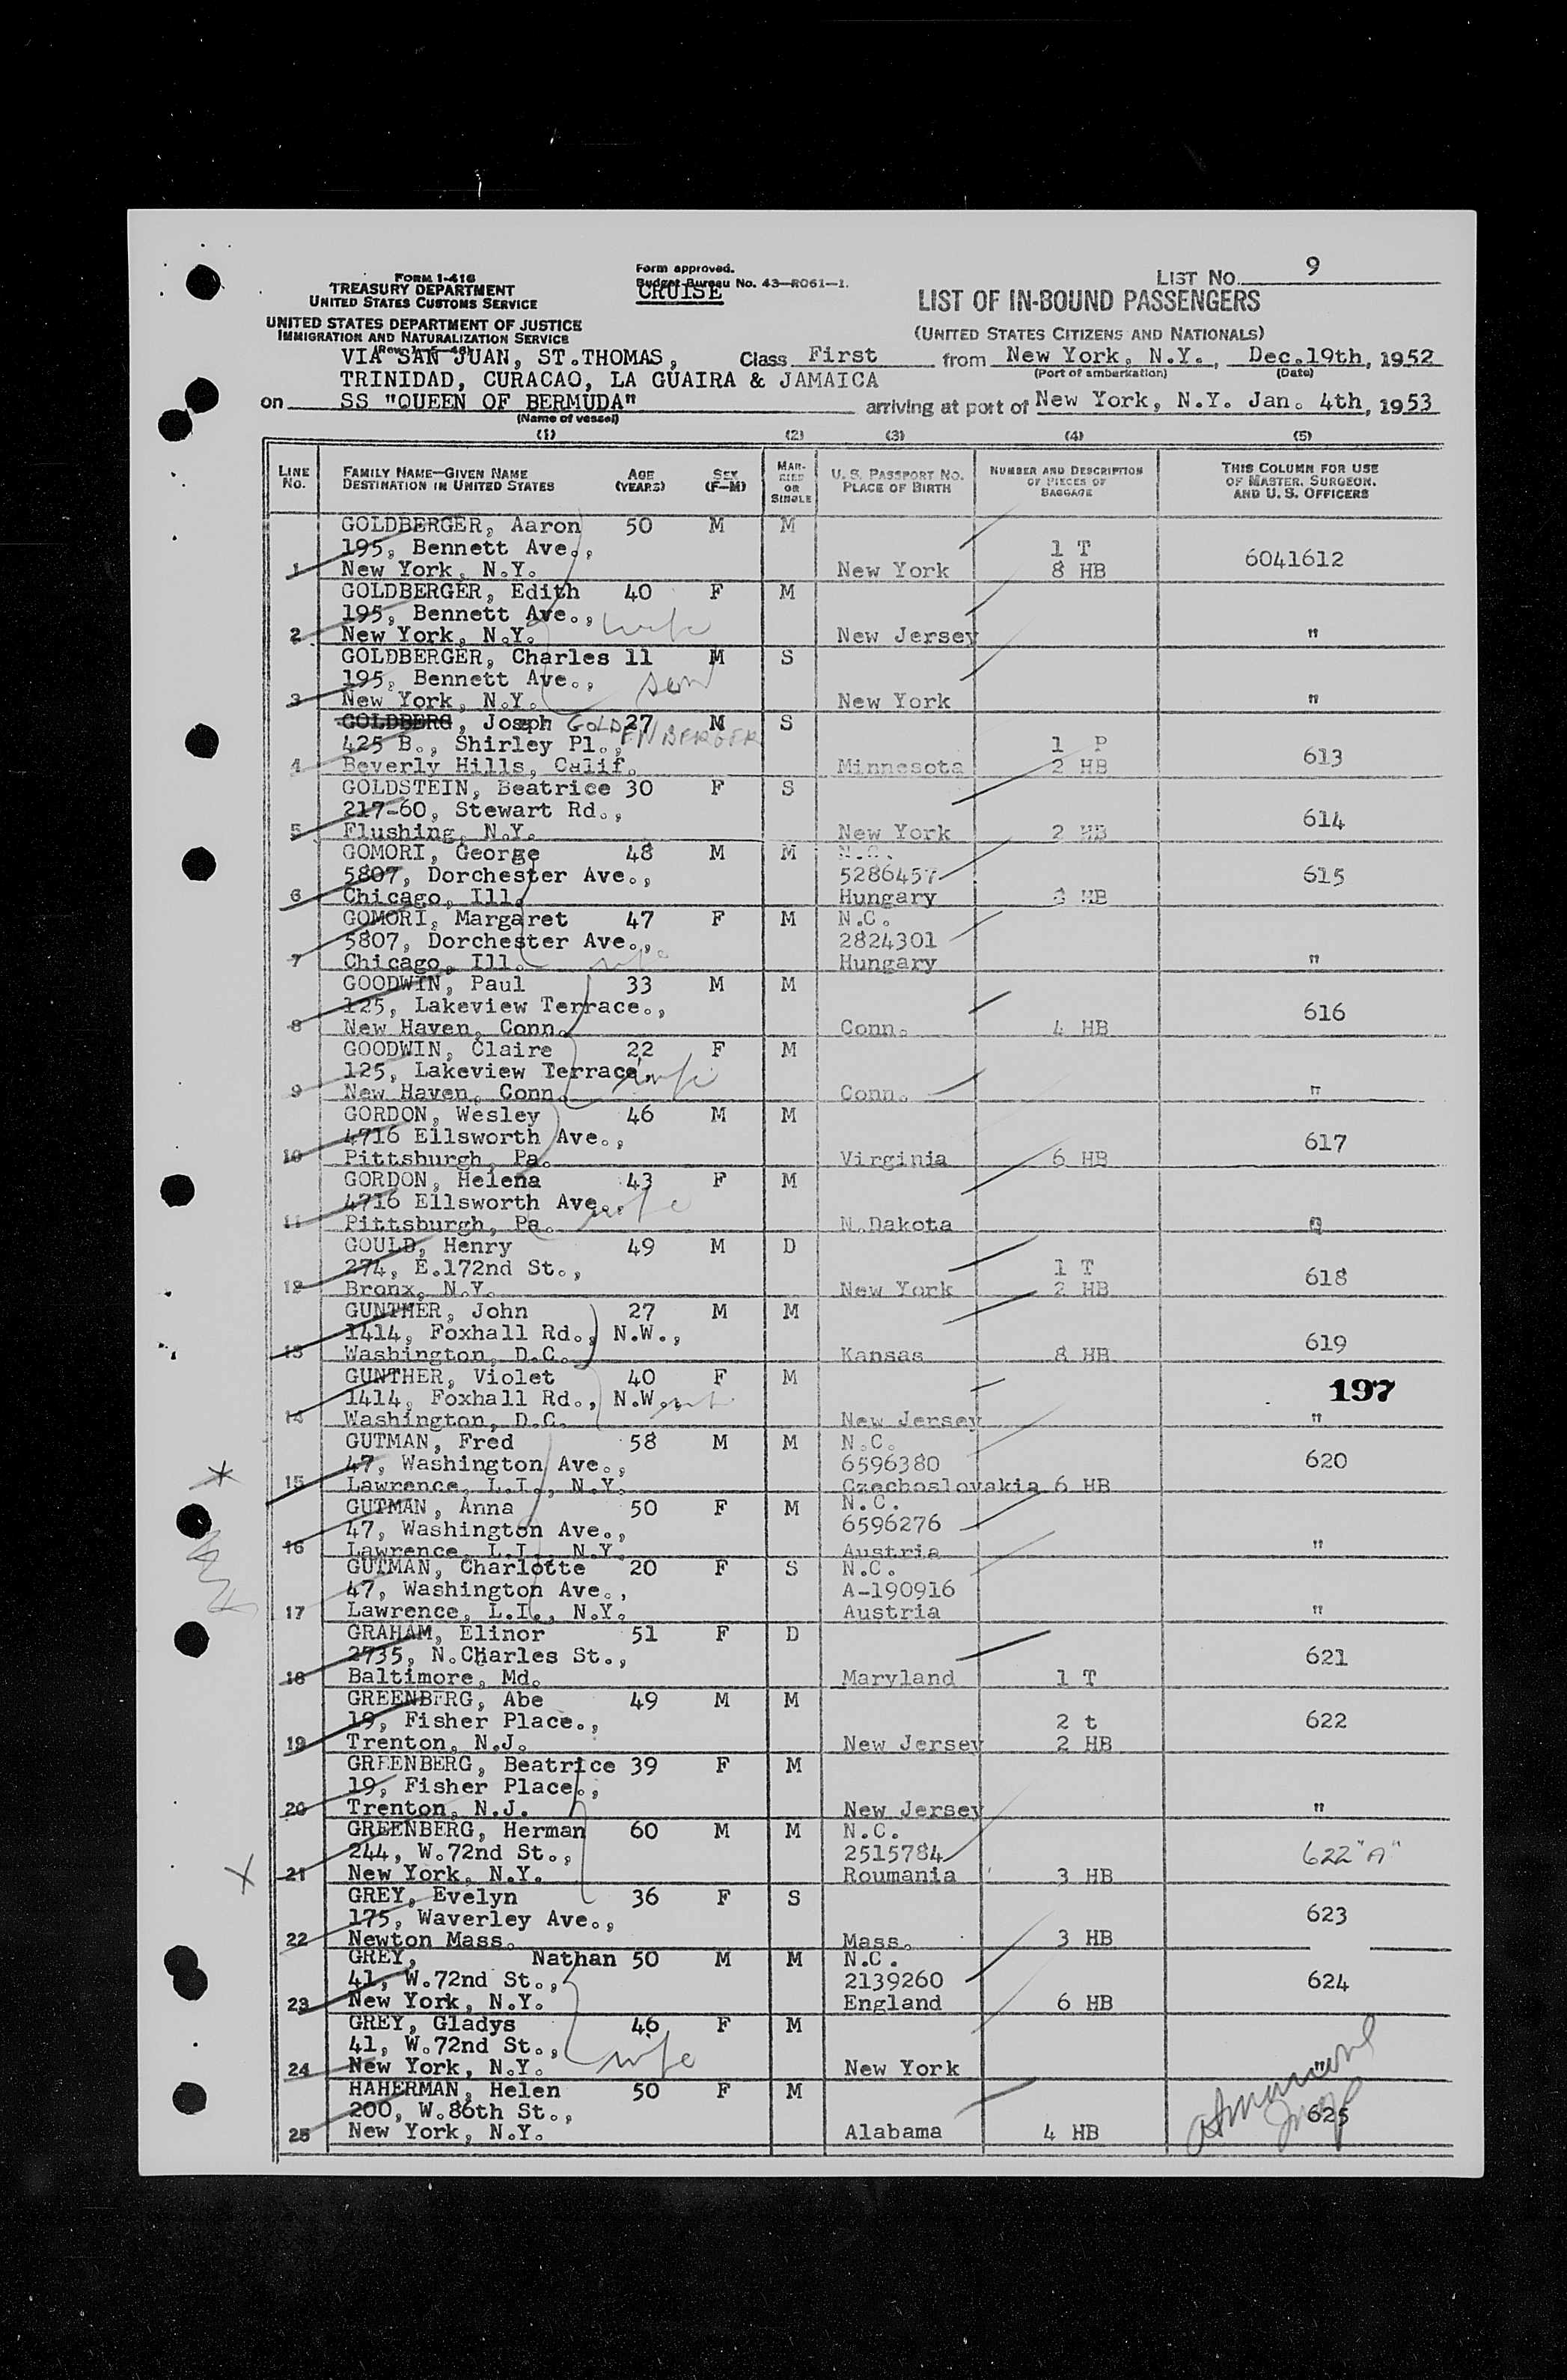 FORM I-416
TREASURY DEPARTMENT
UNITED STATES CUSTOMS SERVICE
UNITED STATES DEPARTMENT OF JUSTICE
IMMIGRATION AND NATURALIZATION SERVICE
Form approved.
Budget Bureau No. 43-R061-1.
CRUISE
LIST NO. 9
LIST OF IN-BOUND PASSENGERS
(UNITED STATES CITIZENS AND NATIONALS)
VIA SAN JUAN, ST.THOMAS, Class First from New York, N.Y., Dec.19th, 1952
(Port of embarkation) (Date)
TRINIDAD, CURACAO, LA GUAIRA & JAMAICA
on SS "QUEEN OF BERMUDA" arriving at port of New York, N.Y. Jan. 4th, 1953
(Name of vessel)
(1) (2) (3) (4) (5)
LINE NO. FAMILY NAME—GIVEN NAME DESTINATION IN UNITED STATES AGE (YEARS) SEX (F—M) MARRIED OR SINGLE U. S. PASSPORT NO. PLACE OF BIRTH NUMBER AND DESCRIPTION OF PIECES OF BAGGAGE THIS COLUMN FOR USE OF MASTER, SURGEON, AND U. S. OFFICERS
GOLDBERGER, Aaron 50 M M
195, Bennett Ave., 1 T 6041612
1 New York, N.Y. New York 8 HB
GOLDBERGER, Edith 40 F M
195, Bennett Ave., wife
2 New York, N.Y. New Jersey "
GOLDBERGER, Charles 11 M S
195, Bennett Ave., son
3 New York, N.Y. New York "
GOLDBERG, Joseph GOLDENBERGER 27 M S
425 B., Shirley Pl., 1 P 613
4 Beverly Hills, Calif. Minnesota 2 HB
GOLDSTEIN, Beatrice 30 F S
217-60, Stewart Rd., 614
5 Flushing, N.Y. New York 2 HB
GOMORI, George 48 M M N.C.
5807, Dorchester Ave., 5286457 615
6 Chicago, Ill. Hungary HB
GOMORI, Margaret 47 F M N.C.
5807, Dorchester Ave., 2824301
7 Chicago, Ill. wife Hungary "
GOODWIN, Paul 33 M M
125, Lakeview Terrace., 616
8 New Haven, Conn. Conn. 4 HB
GOODWIN, Claire 22 F M
125, Lakeview Terrace, wife
9 New Haven, Conn. Conn. "
GORDON, Wesley 46 M M
4716 Ellsworth Ave., 617
10 Pittsburgh, Pa. Virginia 6 HB
GORDON, Helena 43 F M
4716 Ellsworth Ave., wife
11 Pittsburgh, Pa. N.Dakota
GOULD, Henry 49 M D
274, E.172nd St., 1 T 618
12 Bronx, N.Y. New York 2 HB
GUNTHER, John 27 M M
1414, Foxhall Rd., N.W., 619
13 Washington, D.C. Kansas 8 HB
GUNTHER, Violet 40 F M 197
1414, Foxhall Rd., N.W.
14 Washington, D.C. New Jersey "
GUTMAN, Fred 58 M M N.C.
47, Washington Ave., 6596380 620
15 Lawrence, L.I., N.Y. Czechoslovakia 6 HB
GUTMAN, Anna 50 F M N.C.
47, Washington Ave., 6596276
16 Lawrence, L.I., N.Y. Austria "
GUTMAN, Charlotte 20 F S N.C.
47, Washington Ave., A-190916
17 Lawrence, L.I., N.Y. Austria "
GRAHAM, Elinor 51 F D
2735, N.Charles St., 621
18 Baltimore, Md. Maryland 1 T
GREENBERG, Abe 49 M M
19, Fisher Place., 2 t 622
19 Trenton, N.J. New Jersey 2 HB
GREENBERG, Beatrice 39 F M
19, Fisher Place.,
20 Trenton, N.J. New Jersey "
GREENBERG, Herman 60 M M N.C.
244, W.72nd St., 2515784 622"A"
X 21 New York, N.Y. Roumania 3 HB
GREY, Evelyn 36 F S
175, Waverley Ave., 623
22 Newton Mass. Mass. 3 HB
GREY, Nathan 50 M M N.C.
41, W.72nd St., 2139260 624
23 New York, N.Y. England 6 HB
GREY, Gladys 46 F M
41, W.72nd St., wife
24 New York, N.Y. New York "
HAHERMAN, Helen 50 F M
200, W.86th St., 625
25 New York, N.Y. Alabama 4 HB